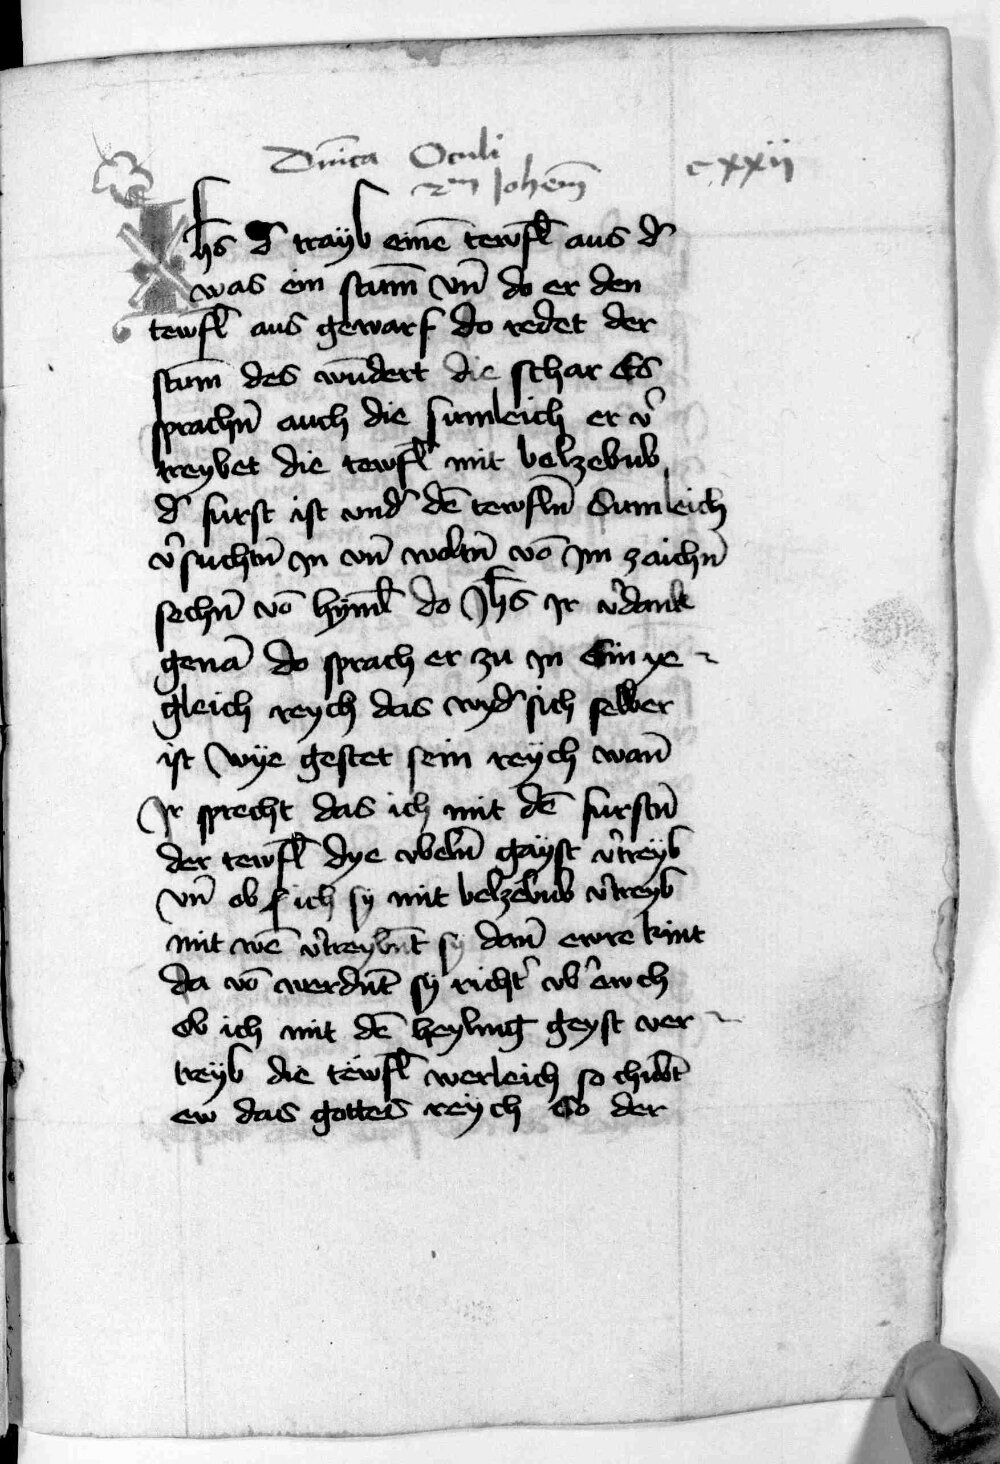 Dnica Oculi c xxii
2m Johem
Ihs d͛ trayb eine̅ tewfl̅ aus d͛
was ein stum̅ vn̅ do er den
tewfl̅ aus gewarf do redet der
stum̅ des wu̅dert die schar Es
sprachn̅ auch die sumleich er v͛
treybet die tewfl̅ mit belzebub
d͛ furst ist vnd͛ de̅ tewfln̅ Sumleich
v͛suchtn̅ in vn̅ woltn̅ vo̅ im zaichn̅
sechn̅ vo̅ hyml̅ do Jh̅s ir v͛dank
gena̅ do sprach er zu in Ein ye
gleich reych das wyd͛ sich selber
ist Wye gestet sein reych wan̅
Ir sprecht das ich mit de̅ furstn̅
der tewfl̅ dye vbeln̅ gayst v͛treyb
Vn̅ ob ich sy mit belzebub v͛treyb
mit we̅ v͛treybn̅t sy dan̅ ewre kint
da vo̅ werdn̅t sy richt͛ vb͛ ewch
ob ich mit de̅ heyling geyst ver
treyb die tewfl̅ werleich so chu̅bt
ew das gottes reych So der